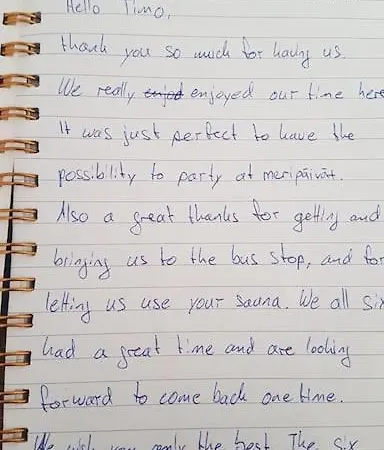 Hello Timo,
thank you so much for having us.
We really enjoyed our time here
It was just perfect to have the
possibility to party at meripäivät.
Also a great thanks for getting and
bringing us to the bus stop, and for
letting us use your sauna. We all six
had a great time and are looking
forward to come back one time.
We wish you only the best The six